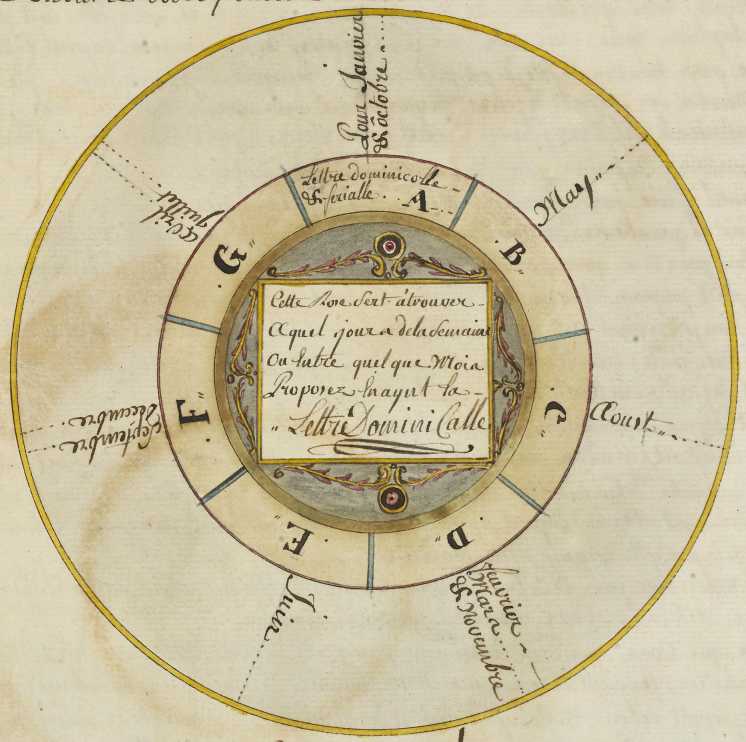 Pour Janvier
& octobre
Lettre dominicalle
& ferialle
A
B
May
C
Aoust
D
feuvrier
Mars
& Novembre
E
Juin
F
Septembre
decembre
G
avril
juillet
Cette Rose sert a trouver
a quel jour de la Semaine
on Entre quel que Mois
Proposez En ayent la
Lettre Domini Calle